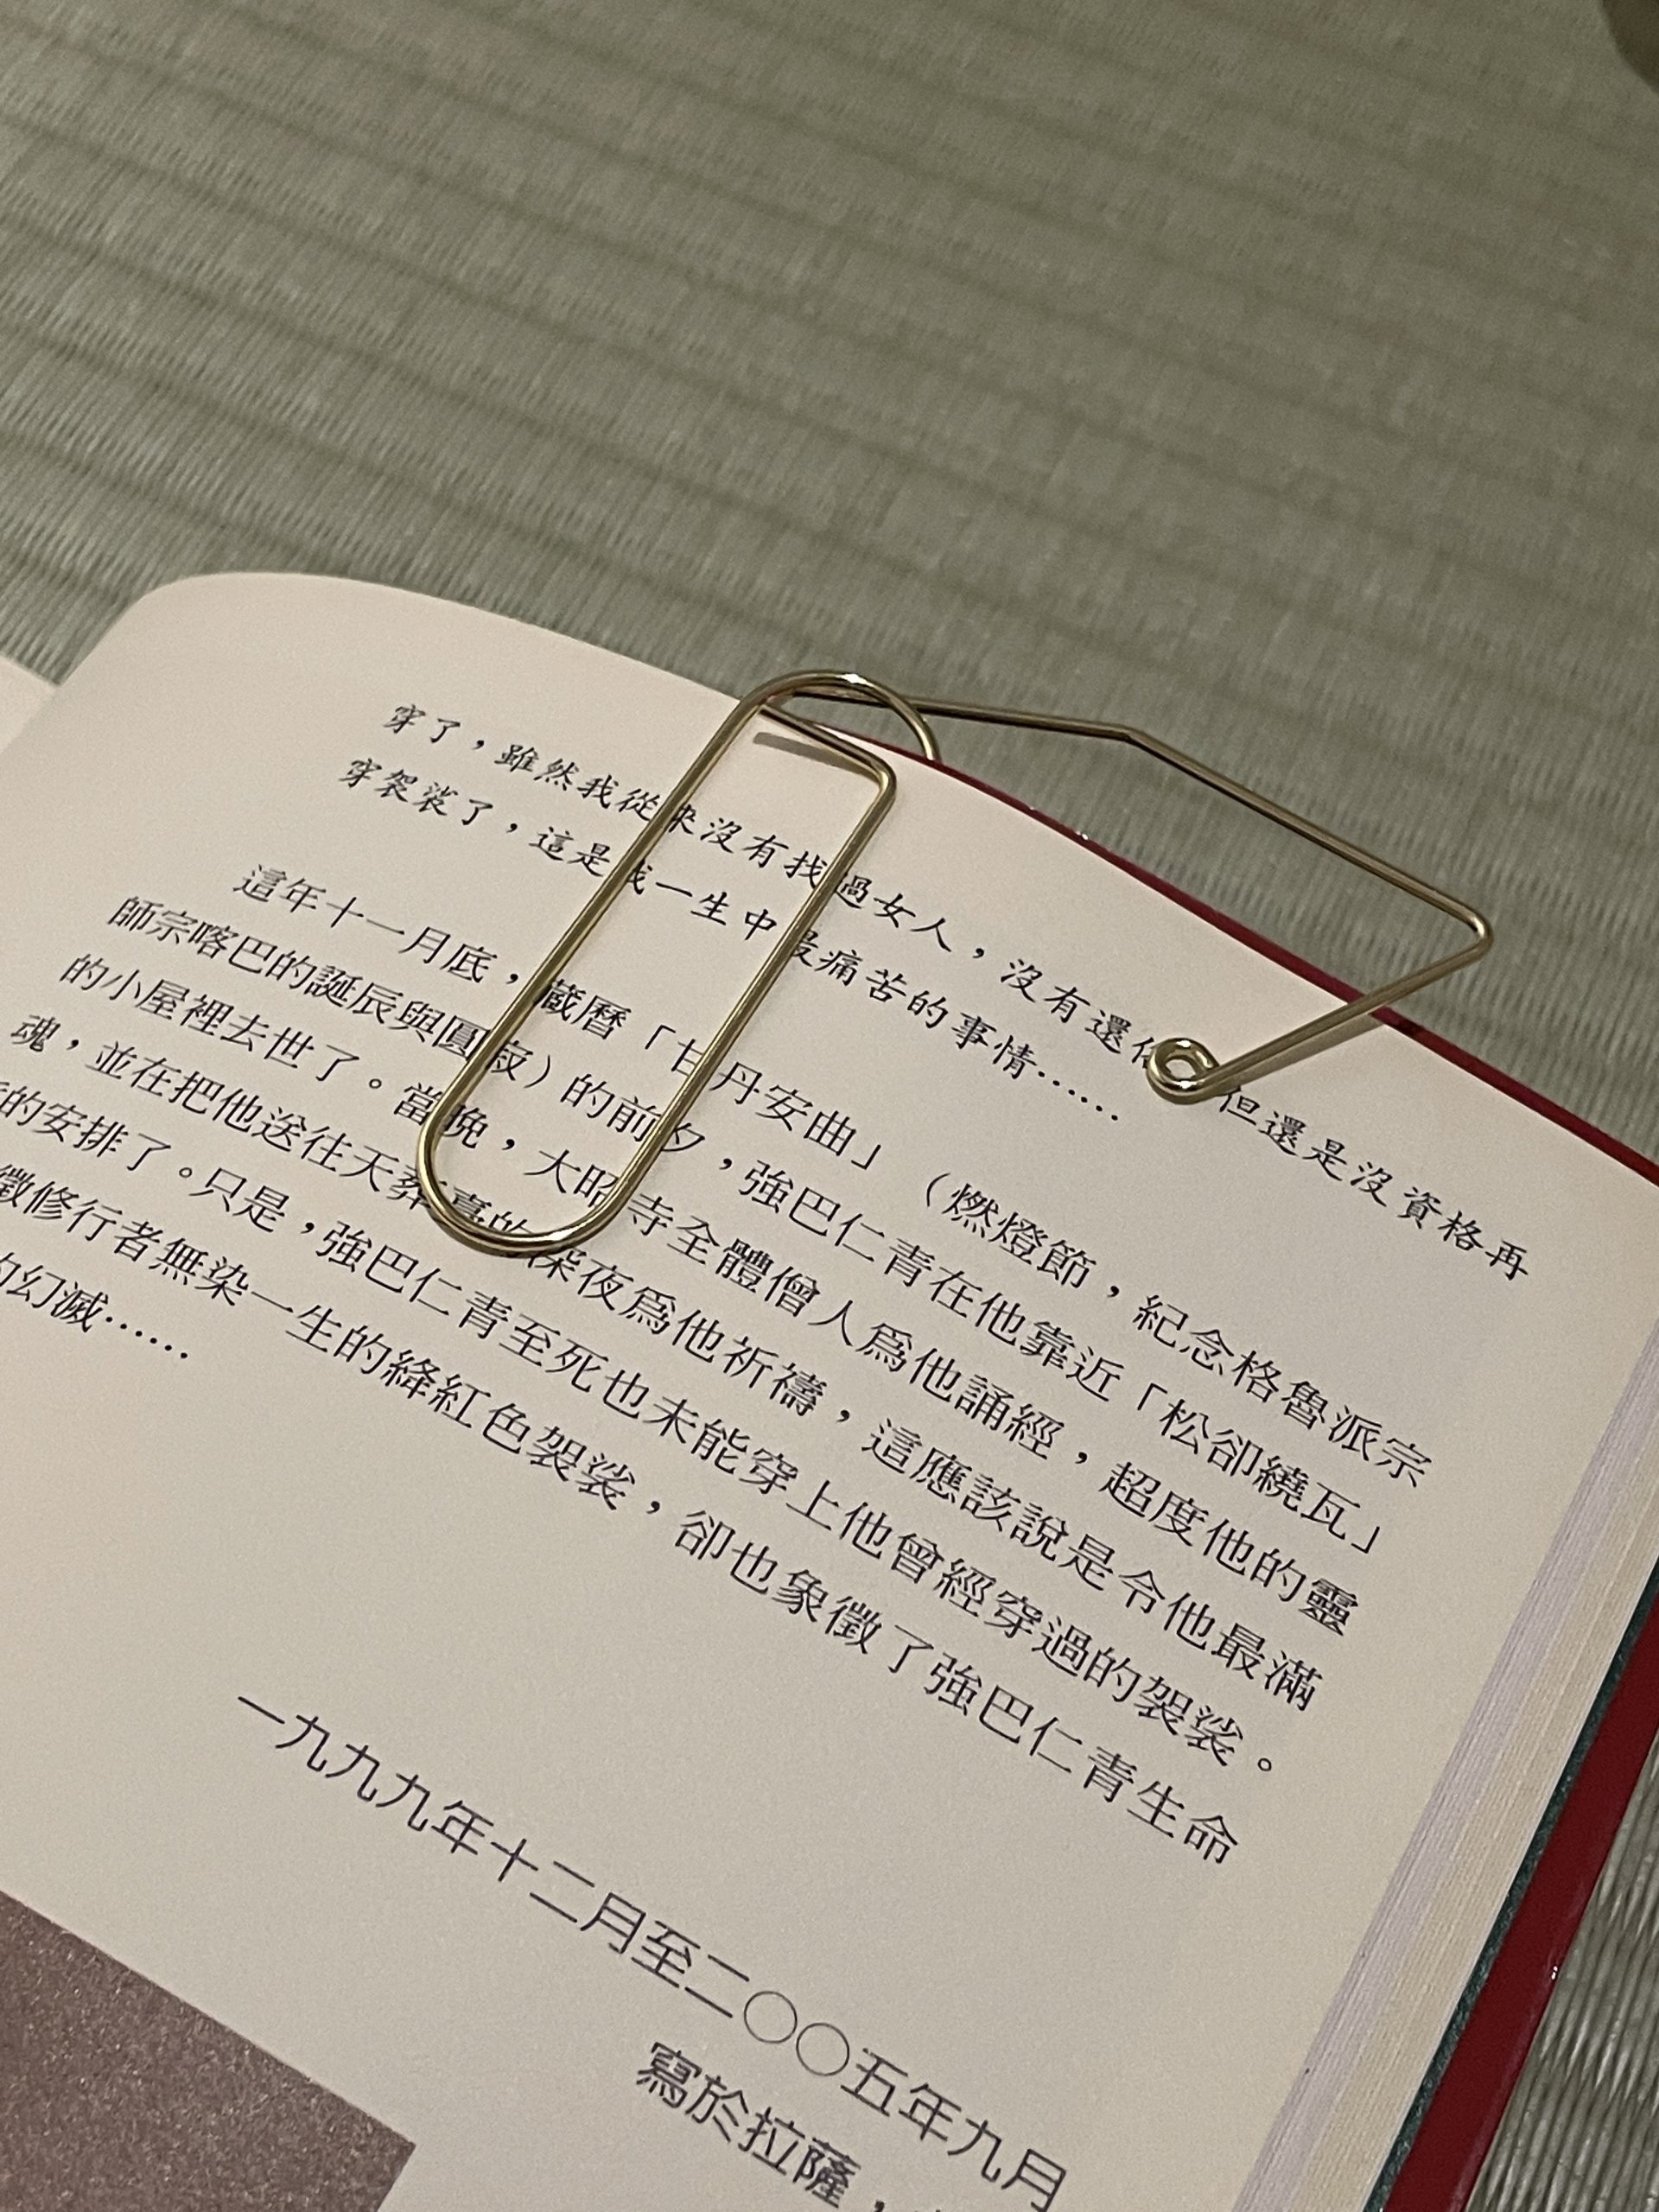 穿了，雖然我從來沒有找過女人，沒有還 但還是沒資格再
穿袈裟了，這是我一生中最痛苦的事情……
這年十一月底，藏曆「甘丹安曲」（燃燈節，紀念格魯派宗
師宗喀巴的誕辰與圓寂）的前夕，強巴仁青在他靠近「松卻繞瓦」
的小屋裡去世了。當晚，大昭寺全體僧人爲他誦經，超度他的靈
魂，並在把他送往天葬臺的深夜爲他祈禱，這應該說是令他最滿
的安排了。只是，強巴仁青至死也未能穿上他曾經穿過的袈裟。
徵修行者無染一生的絳紅色袈裟，卻也象徵了強巴仁青生命
的幻滅……
一九九九年十二月至二〇〇五年九月
寫於拉薩，